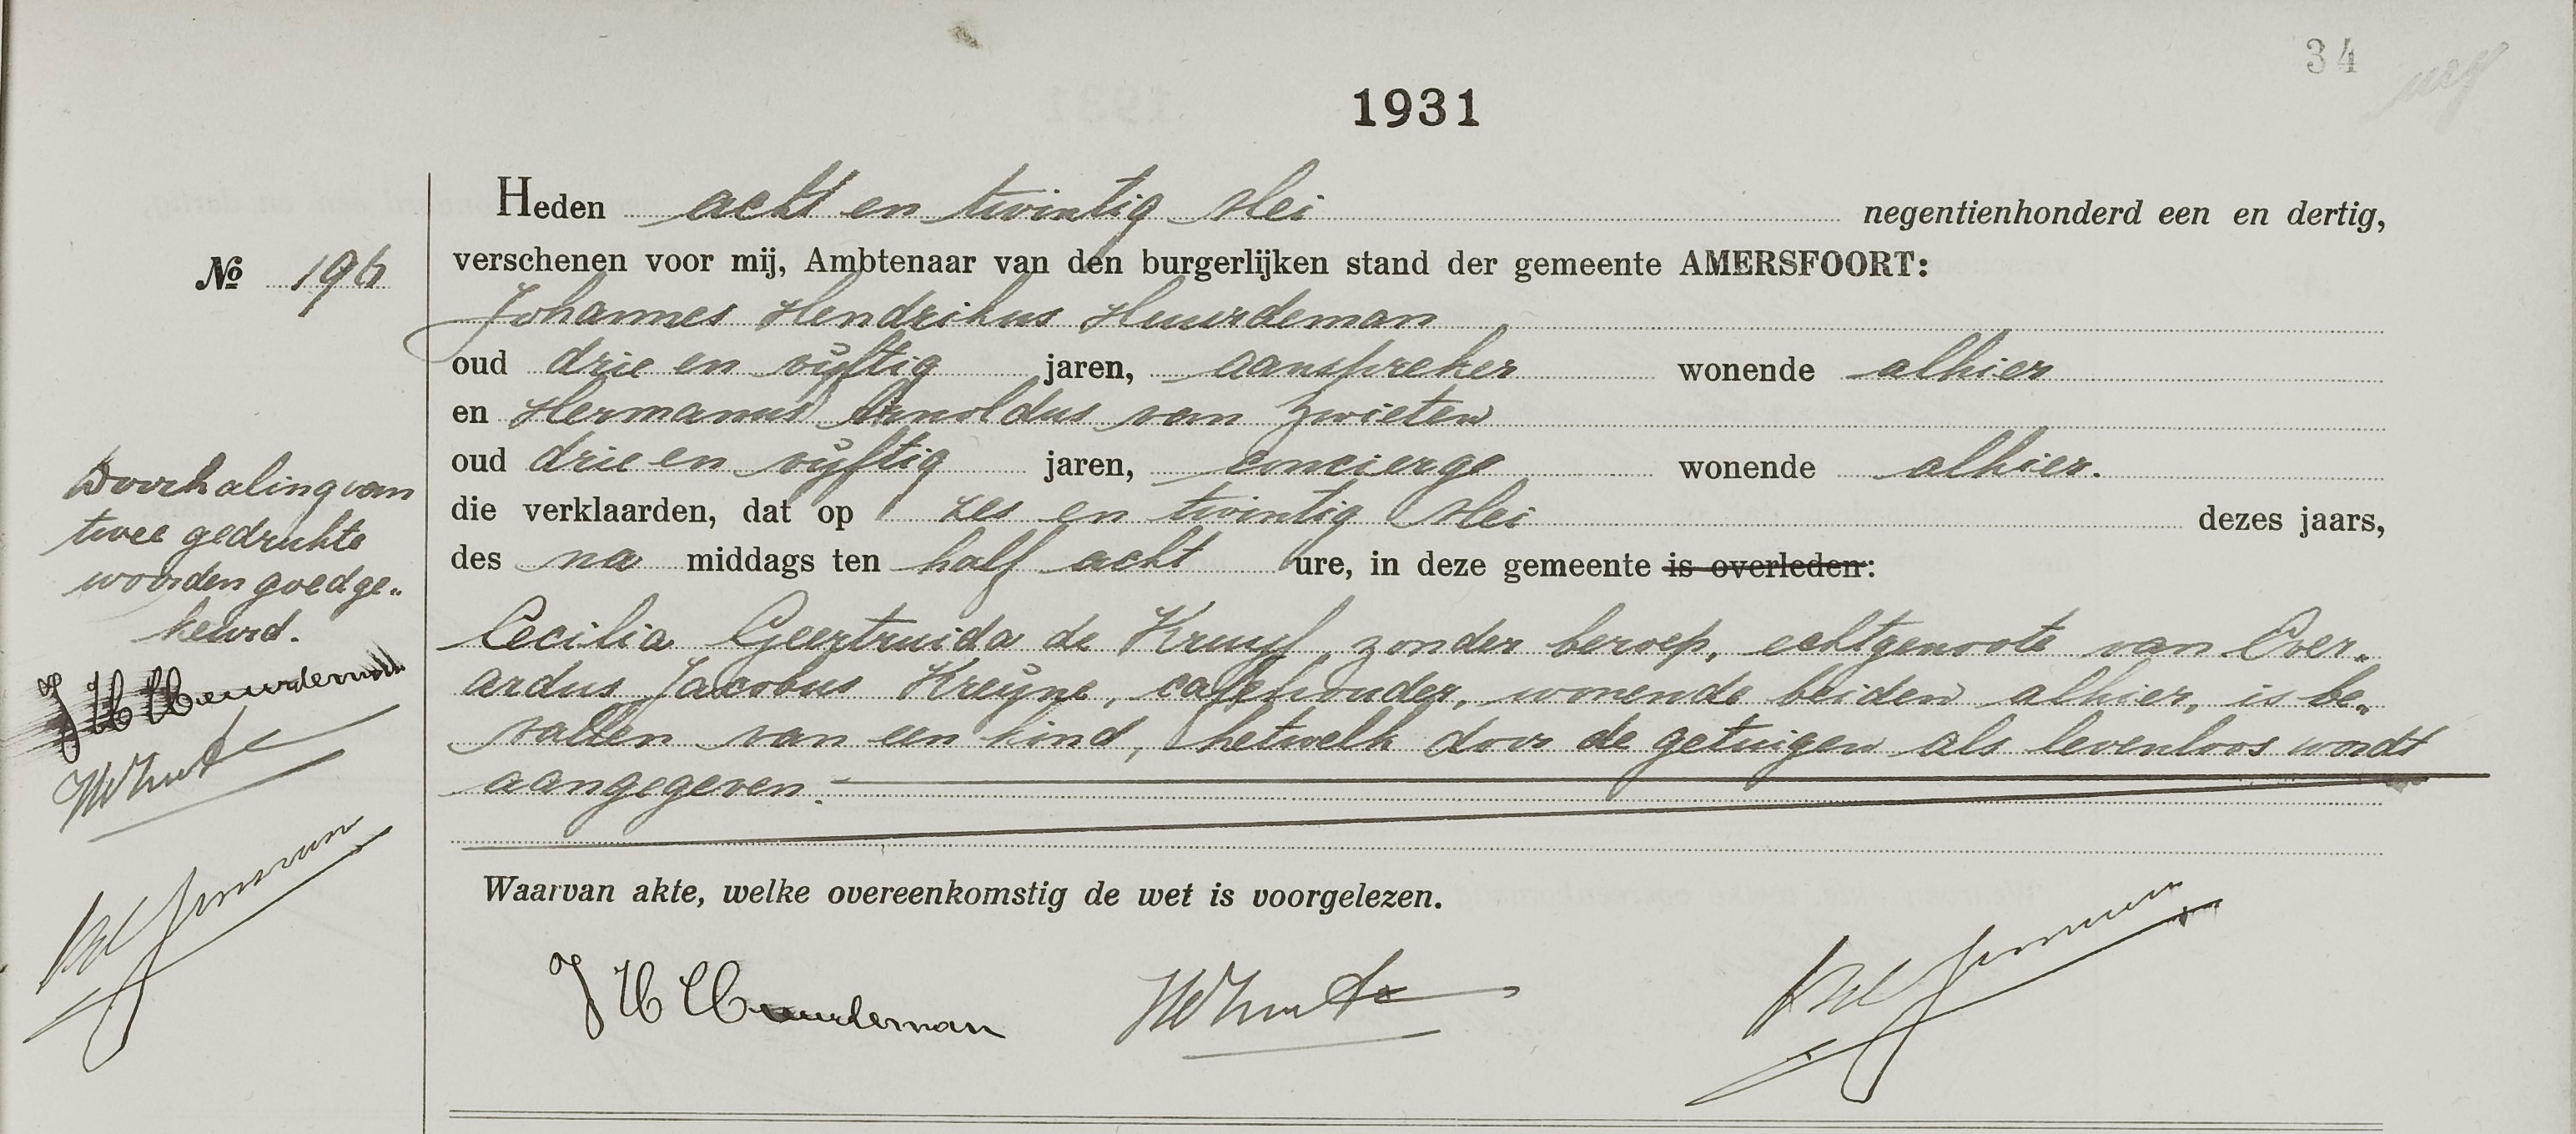 34
1931
Heden acht en twintig Mei negentienhonderd een en dertig,
No 196
verschenen voor mij, Ambtenaar van den burgerlijken stand der gemeente AMERSFOORT:
Johannes Hendrikus Huurdeman
oud drie en vijftig jaren, aanspreker wonende alhier
en Hermanus Arnoldus van Zwieten
oud drie en vijftig jaren, concierge wonende alhier.
die verklaarden, dat op zes en twintig Mei dezes jaars,
des na middags ten half acht ure, in deze gemeente is overleden:
Cecilia Geertruida de Kruyf, zonder beroep, echtgenoote van Ever„
ardus Jacobus Kreijne, caféhouder, wonende beiden alhier, is be„
vallen van een kind, hetwelk door de getuigen als levenloos wordt
aangegeven.
Doorhaling van
twee gedrukte
woorden goedge„
keurd.
J H Heuurdeman
Waarvan akte, welke overeenkomstig de wet is voorgelezen.
J H Heuurdeman